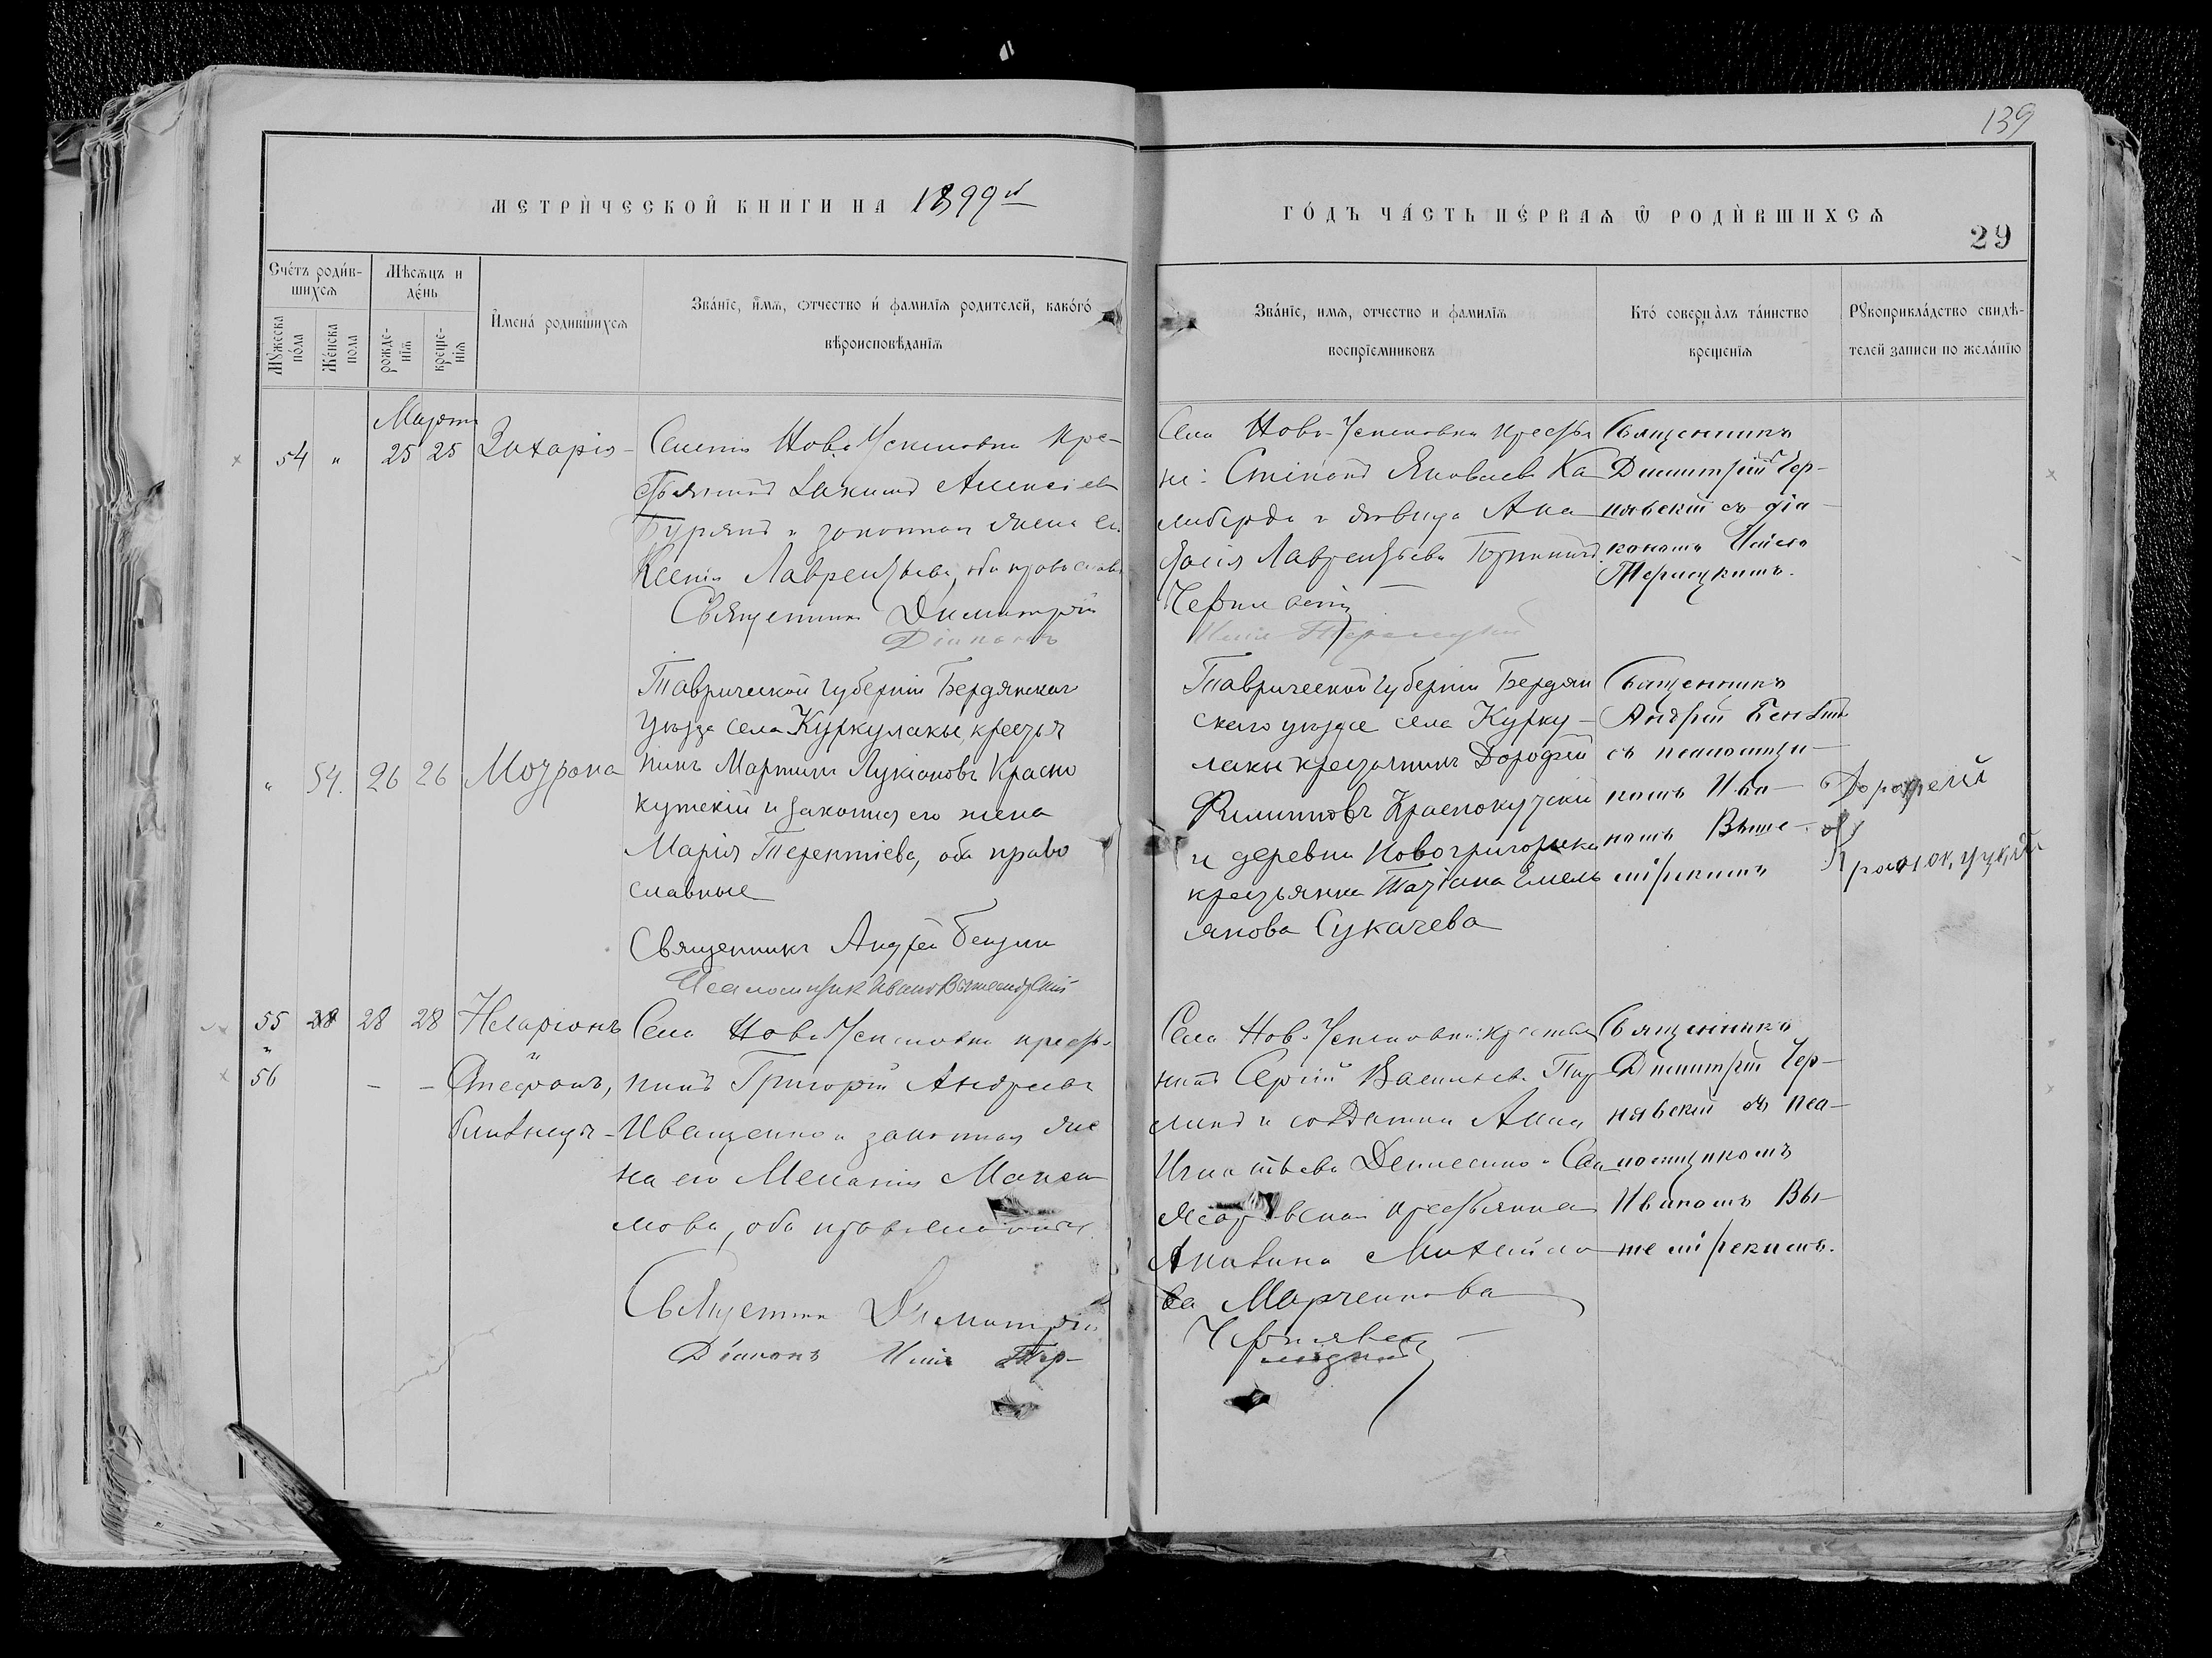 139
МЕТРИ́ЧЕСКОЙ КНИГИ НА 1899й
ГО́ДЪ ЧА́СТЬ ПЕ́РВАЯ Ѡ РОДИ́ВШИХСЯ
29
Сче́тъ роди́в-
шихся
Мѣсяцъ и
де́нь
Мꙋжеска
по́ла
Же́нска
пола
рожде-
нїя
креще-
нїя
И҆мена́ родившихся
Зва́нїе, и҆́мя, ѻтчество и҆ фамилїя родителей, како́го
вѣроисповѣданїя
Зва́нїе, имя, отчество и фамилїя
воспрїемниковъ
Кто́ соверша̀лъ та́инство
крещенїя
Рꙋкоприкла́дство свидѣ-
телей записи по жела́нїю
Мартъ
54 " 25 25 Захарія
Села Ново-Успеновки кре-
стьянинъ Іакимъ Алексіевъ
Бурянъ и законная жена его
Ксенія Лаврентьева, оба православ
Священникъ Димитрій
Діаконъ
Села Ново-Успеновки крестья
не: Стефанъ Яковлевъ Ка
либерда и дѣвица Ана
стасія Лаврентьева
Чернявскій
Илія Терлецкій
Священникъ
Димитрій Чер-
нявскій съ діа-
кономъ Иліею
Терлецкимъ.
" 54. 26 26 Мотрона
Таврической губерніи Бердянскаго
уѣзда села Куркулакы, крестья
нинъ Мартинъ Лукіановъ Красно
кутскій и законная его жена
Марія Терентіева, оба право
славные
Священникъ Андрей Бенгин
Псаломщикъ Иванъ Вышемірскій
Таврической губерніи Бердян
скаго уѣзда села Курку-
лакы крестьянинъ Дорофій
Филипповъ Краснокутскій
и деревни Новогригорьевки
крестьянка Татіана Емель
янова Сукачева
Священникъ
Андрей
съ псаломщи-
комъ Ива-
номъ Выше-
мірскимъ
Дорофей
Ф
Краснокуцкій
55 28 28 28 Иларіонъ
"
56 - - Стефанъ,
близнецы
Села Ново-Успеновки кресть-
нинъ Григорій Андреевъ
Иващенко и законная же
на его Меланія Макси
мова, оба православные.
Священникъ Димитрій
Діаконъ Илія Тер-
Села Ново-Успеновки: крестья
нинъ Сергій Васильевъ
и солдатка Анна
Игнатьева Денисенко и
крестьянка
Михайло
ва Марченкова
Чернявскій
лецкій
Священникъ
Димитрій Чер-
нявскій съ пса-
ломщикомъ
Иваномъ Вы-
шемірскимъ.